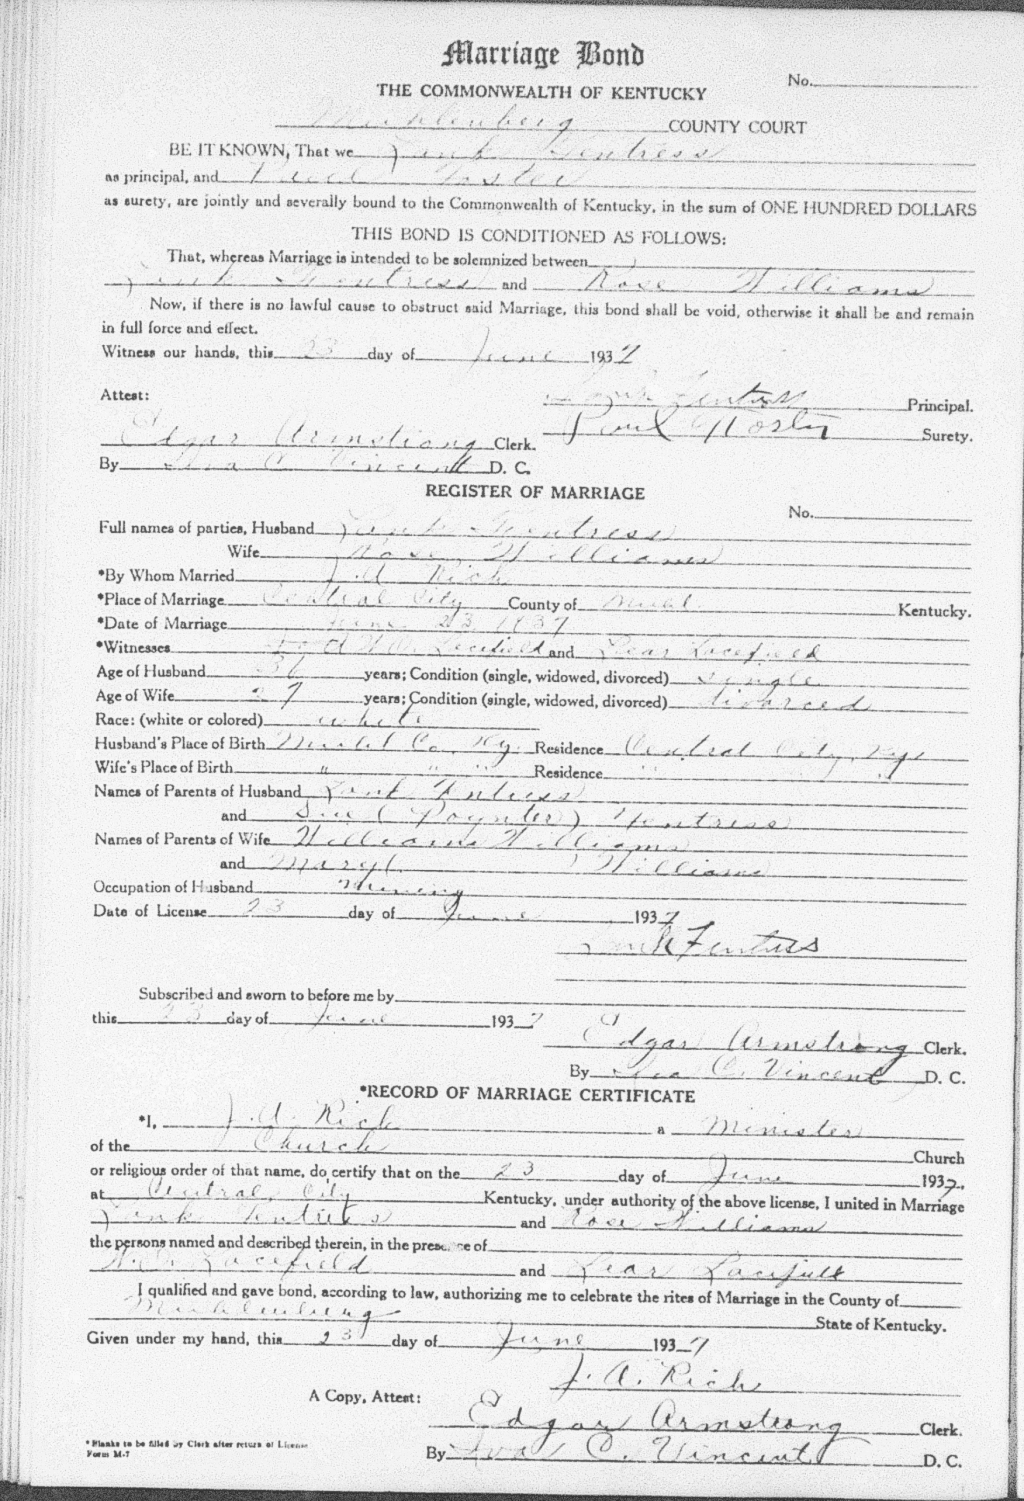 Marriage Bond
No.
THE COMMONWEALTH OF KENTUCKY
Muhlenberg COUNTY COURT
BE IT KNOWN, That we Fentress
as principal, and Foster
as surety, are jointly and severally bound to the Commonwealth of Kentucky, in the sum of ONE HUNDRED DOLLARS
THIS BOND IS CONDITIONED AS FOLLOWS:
That, whereas Marriage is intended to be solemnized between
Fentress and Rose Williams
Now, if there is no lawful cause to obstruct said Marriage, this bond shall be void, otherwise it shall be and remain
in full force and effect.
Witness our hands, this 23 day of June 1937
Attest:
Fentress Principal.
Edgar Armstrong Clerk. Paul Foster Surety.
By C. Vincent D. C.
REGISTER OF MARRIAGE
No.
Full names of parties, Husband Fentress
Wife Rose Williams
*By Whom Married J. A. Rich
*Place of Marriage Central City County of Muhl. Kentucky.
*Date of Marriage June 23, 1937
*Witnesses Lacefield and Lear Lacefield
Age of Husband 36 years; Condition (single, widowed, divorced) single
Age of Wife 27 years; Condition (single, widowed, divorced) divorced
Race: (white or colored) white
Husband's Place of Birth Muhl Co. Ky. Residence Central City, Ky.
Wife's Place of Birth " " " Residence " "
Names of Parents of Husband Fentress
and (Poynter) Fentress
Names of Parents of Wife Williams Williams
and Mary ( ) Williams
Occupation of Husband Mining
Date of License 23 day of June 1937
Fentress
Subscribed and sworn to before me by
this 23 day of June 1937
Edgar Armstrong Clerk.
By C. Vincent D. C.
*RECORD OF MARRIAGE CERTIFICATE
*I, J. A. Rich a Minister
of the Church Church
or religious order of that name, do certify that on the 23 day of June 1937,
at Central City Kentucky, under authority of the above license, I united in Marriage
Fentress and Rose Williams
the persons named and described therein, in the presence of
Lacefield and Lear Lacefield
I qualified and gave bond, according to law, authorizing me to celebrate the rites of Marriage in the County of
Muhlenberg State of Kentucky.
Given under my hand, this 23 day of June 1937
J. A. Rich
A Copy, Attest:
Edgar Armstrong Clerk.
*Blanks to be filled by Clerk after return of License
Form M-7
By C. Vincent D. C.